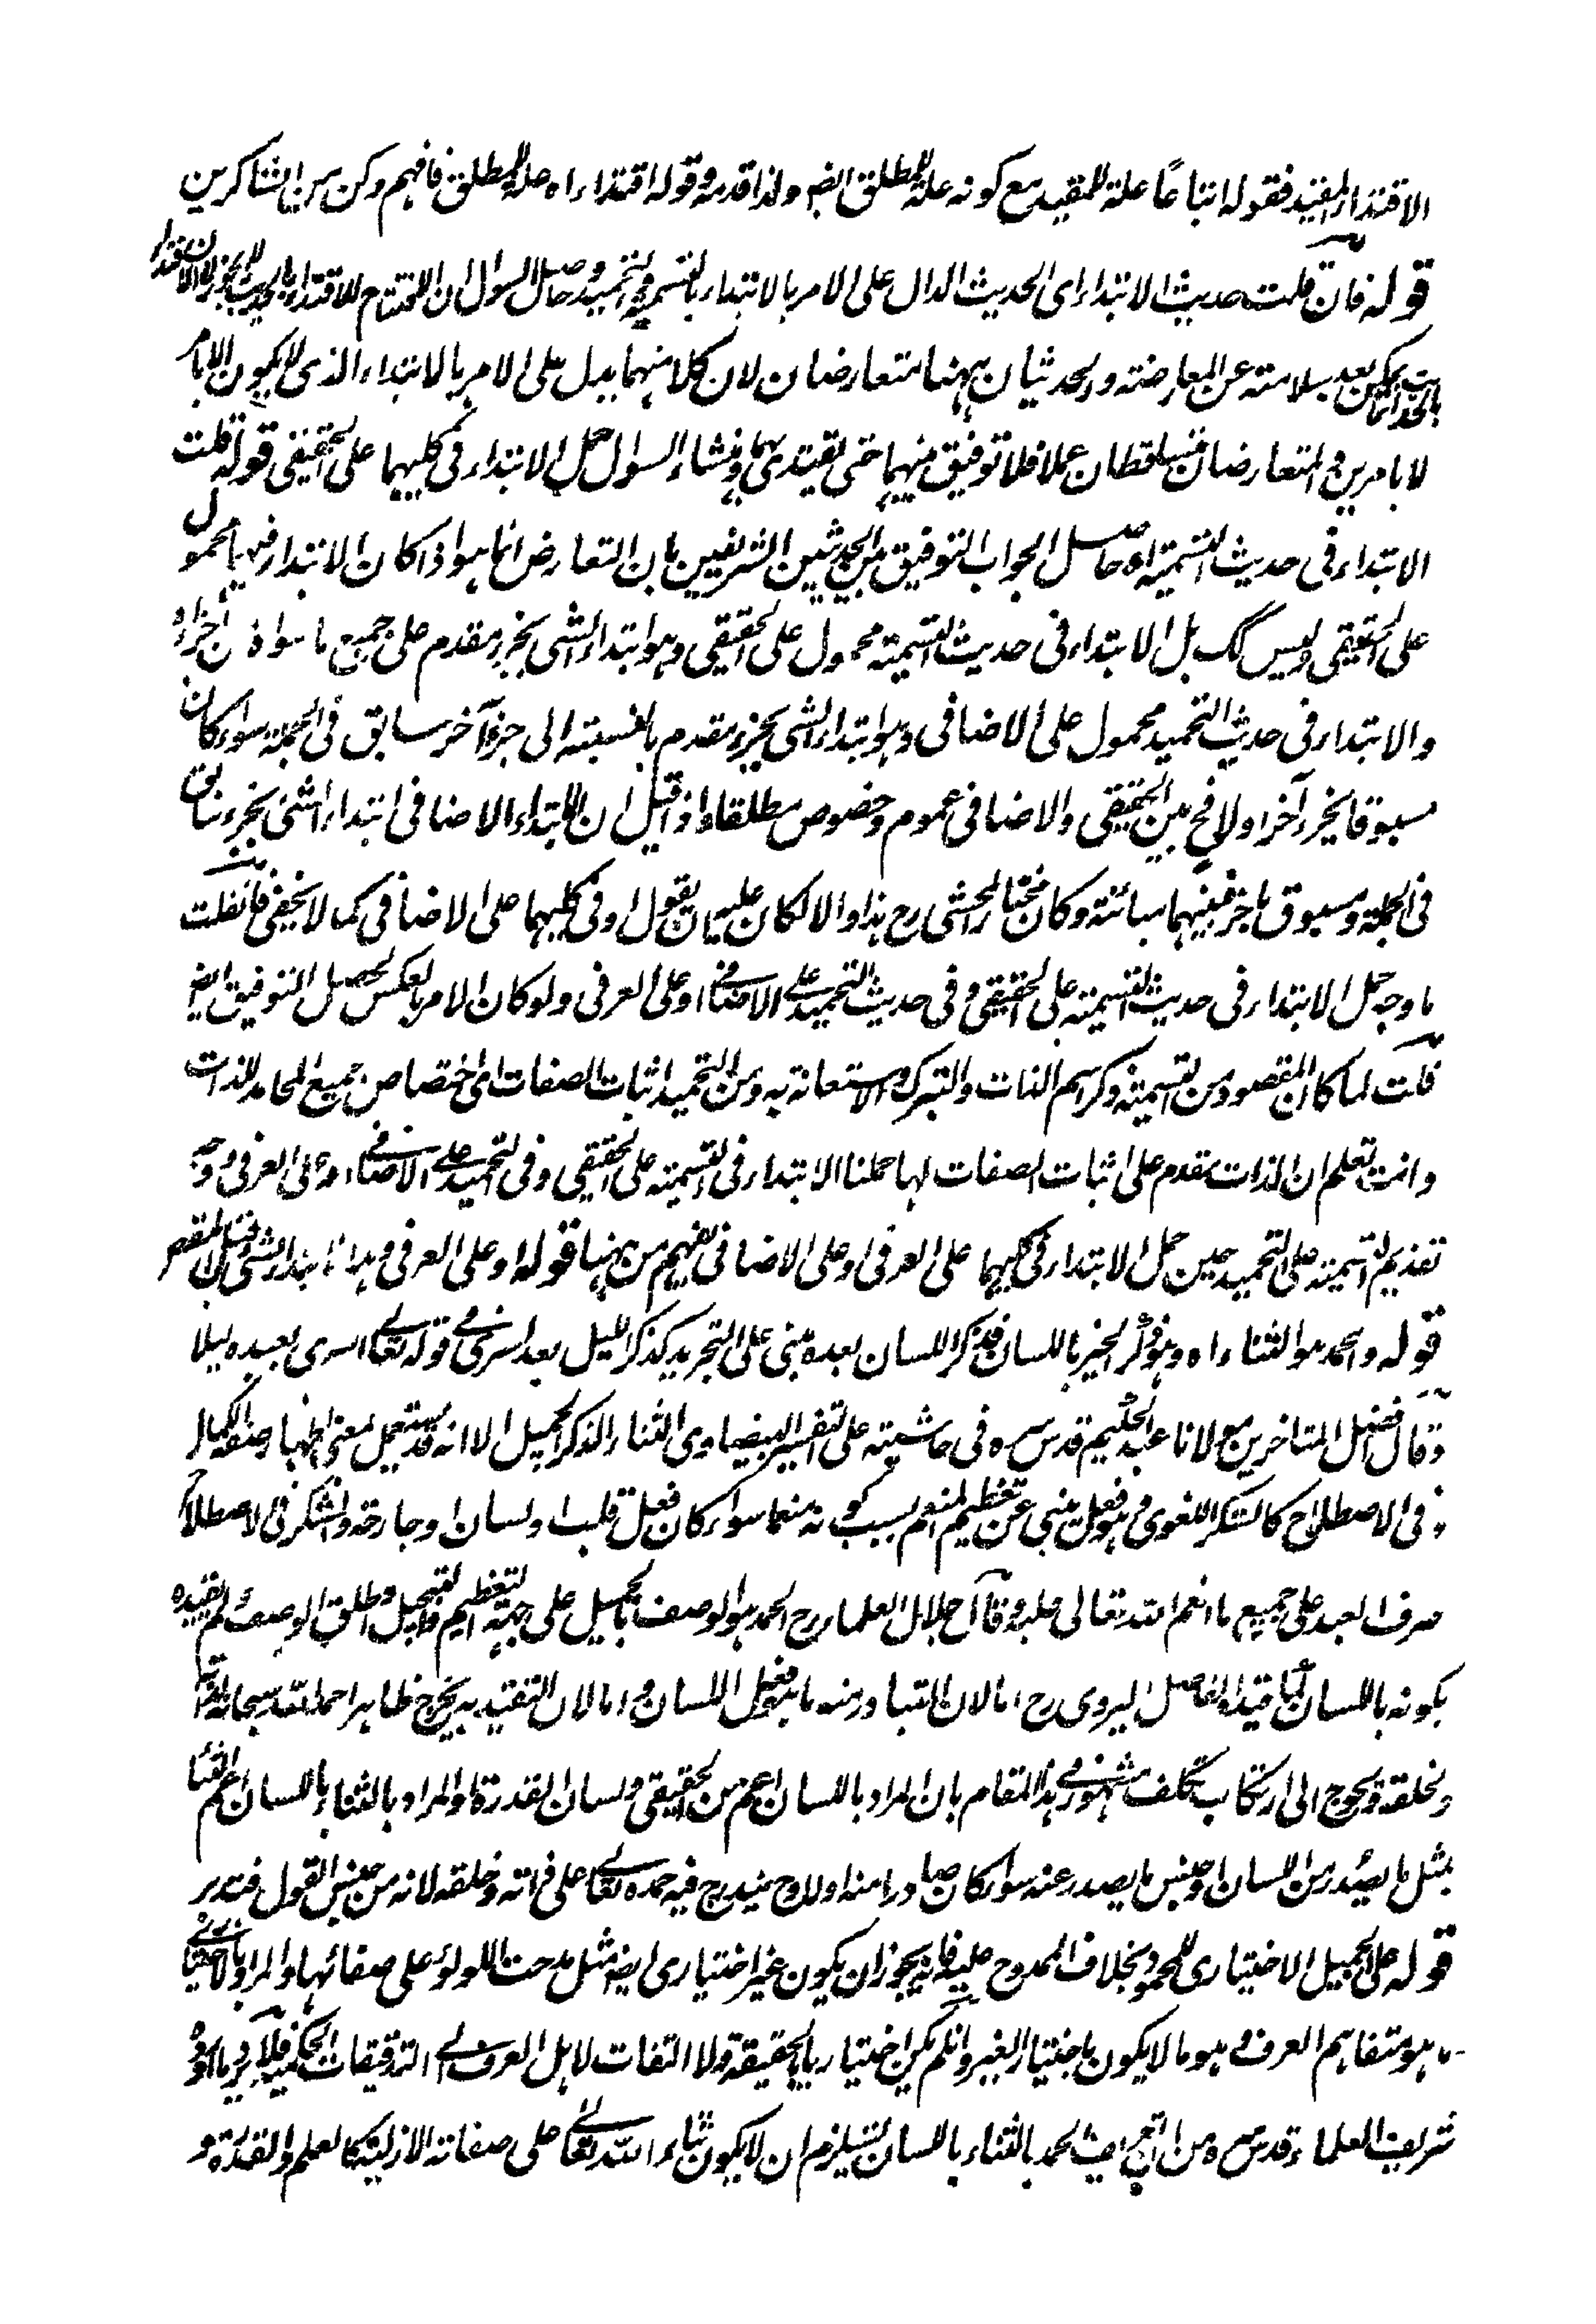 الاقتداء المقيد فقوله اتباعًا علة للمقيد مع كونه علة للمطلق ايضا ولذا قدمه وقوله اقتداء اه علة للمطلق فافهم وكن من الشاكرين
قوله فان قلت حديث الابتداء اى الحديث الدال على الامر بالابتداء بالتسمية والتحميد وحاصل السوال ان الافتتاح للاقتداء بالحديث لا يجوز لان الاقتداء
بالحديث انما يمكن بعد سلامته عن المعارضة والحديثان ههنا متعارضان لان كلا منهما يدل على الامر بالابتداء الذى لا يكون الا بامر
لا بامرين والمتعارضان فيتساقطان عملا فلا توفيق بينهما حتى يقتدى بهما ومنشاء السوال حمل الابتداء فى كليهما على الحقيقى قوله قلت
الابتداء فى حديث التسمية اه حاصل الجواب التوفيق بين الحديثين الشريفين بان التعارض انما هو اذا كان الابتداء فيهما محمول
على الحقيقى وليس كك بل الابتداء فى حديث التسمية محمول على الحقيقى وهو ابتداء الشى بجزء مقدم على جميع ما سواه من اجزاءه
والابتداء فى حديث التحميد محمول على الاضافى وهو ابتداء الشى بجزء مقدم بالنسبة الى جزء آخر سابق فى الجملة سواء كان
مسبوقا بجزء آخر اولا فح بين الحقيقى والاضافى عموم وخصوص مطلقا واذا قيل ان الابتداء الاضافى ابتداء الشى بجزء سابق
فى الجملة ومسبوق باخر فبينهما مباينة وكان مختار المحشى رح هذا والا لكان عليه ان يقول او فى كليهما على الاضافى كما لا يخفى فان قلت
ما وجه حمل الابتداء فى حديث التسمية على الحقيقى وفى حديث التحميد على الاضافى او على العرفى ولو كان الامر بالعكس لحصل التوفيق ايضا
قلت لما كان المقصود من التسمية ذكر اسم الذات والتبرك والاستعانة به ومن التحميد اثبات الصفات اى اختصاص جميع المحامد للذات
وانت تعلم ان الذات مقدم على اثبات الصفات لها حملنا الابتداء فى التسمية على الحقيقى وفى التحميد على الاضافى او على العرفى ووجه
تقديم التسمية على التحميد حين حمل الابتداء فى كليهما على العرفى او على الاضافى يفهم من ههنا قوله او على العرفى وهذا ابتداء الشى قبل المقصود
قوله والحمد هو الثناء اه وهو ذكر الخير باللسان فذكر اللسان بعده مبنى على التجريد كذكر الليل بعد اسرى فى قوله تعالى اسرى بعبده ليلا
وقال افضل المتاخرين مولانا عبد الحكيم قدس سره فى حاشيته على تفسير البيضاوى الثناء الذكر الجميل الا انه قد يستعمل بمعنى اظهار صفة الكمال
فى الاصطلاح كالشكر اللغوى وهو فعل ينبى عن تعظيم المنعم بسبب كونه منعما سواء كان فعل قلب او لسان او جارحة والشكر فى الاصطلاح
صرف العبد على جميع ما انعم الله تعالى عليه وقال اجلال العلماء رح الحمد هو الوصف بالجميل على جهة التعظيم والتبجيل واطلق الوصف ولم يقيده
بكونه باللسان كما قيده الفاضل اليزدى رح اما لان المتبادر منه ما هو فعل اللسان واما لان التقييد به يخرج ظاهرا حمد الله سبحانه لذاته
ولخلقه ويحوج الى ارتكاب تكلف مشهور فى هذا المقام بان المراد باللسان اعم من الحقيقى ولسان القدرة والمراد بالثناء باللسان اعم الثناء
بمثل ما يصدر من اللسان او جنس ما يصدر عنه سواء كان صادرا منه اولا وح يندرج فيه حمده تعالى على ذاته وخلقه لانه من جنس القول فتدبر
قوله على الجميل الاختيارى للمحمود بخلاف الممدوح عليه فانه يجوز ان يكون غير اختيارى ايضا مثل مدحت اللولو على صفائها والمراد بالاختيارى
ما هو متفاهم العرف وهو ما لا يكون باختيار الغير وان لم يكن اختياريا بالحقيقة ولا التفات لاهل العرف الى التدقيقات الحكمية فلا يرد ما اورده
شريف العلماء قدس سره من ان تعريف الحمد بالثناء باللسان يستلزم ان لا يكون ثناء الله تعالى على صفاته الازلية كالعلم والقدرة و